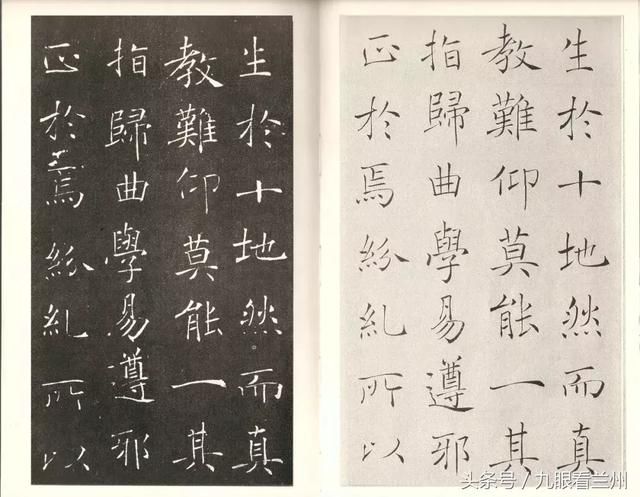 生於十地然而真
教難仰莫能一其
指歸曲學易遵邪
正於焉紛糺所以
生於十地然而真
教難仰莫能一其
指歸曲學易遵邪
正於焉紛糺所以
头条号 / 九眼看兰州